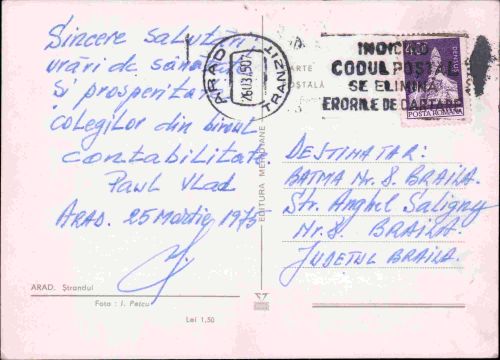 Sincere salutări
urări de sănătate
și prosperitate
colegilor din biroul
contabilitate
Paul Vlad
ARAD. 25 Martie 1975
ARAD
TRANZIT
CARTE POȘTALĂ
INDICÎND
CODUL POȘTAL
SE ELIMINĂ
ERORILE DE CARTARE
DENSUȘ
POSTA ROMANA
EDITURA MERIDIANE
DESTINATAR:
BATMA Nr. 8. BRAILA.
Str. Anghel Saligny
Nr. 8. BRAILA.
JUDEȚUL BRAILA.
ARAD. Ștrandul
Foto: I. Petcu
Lei 1,50